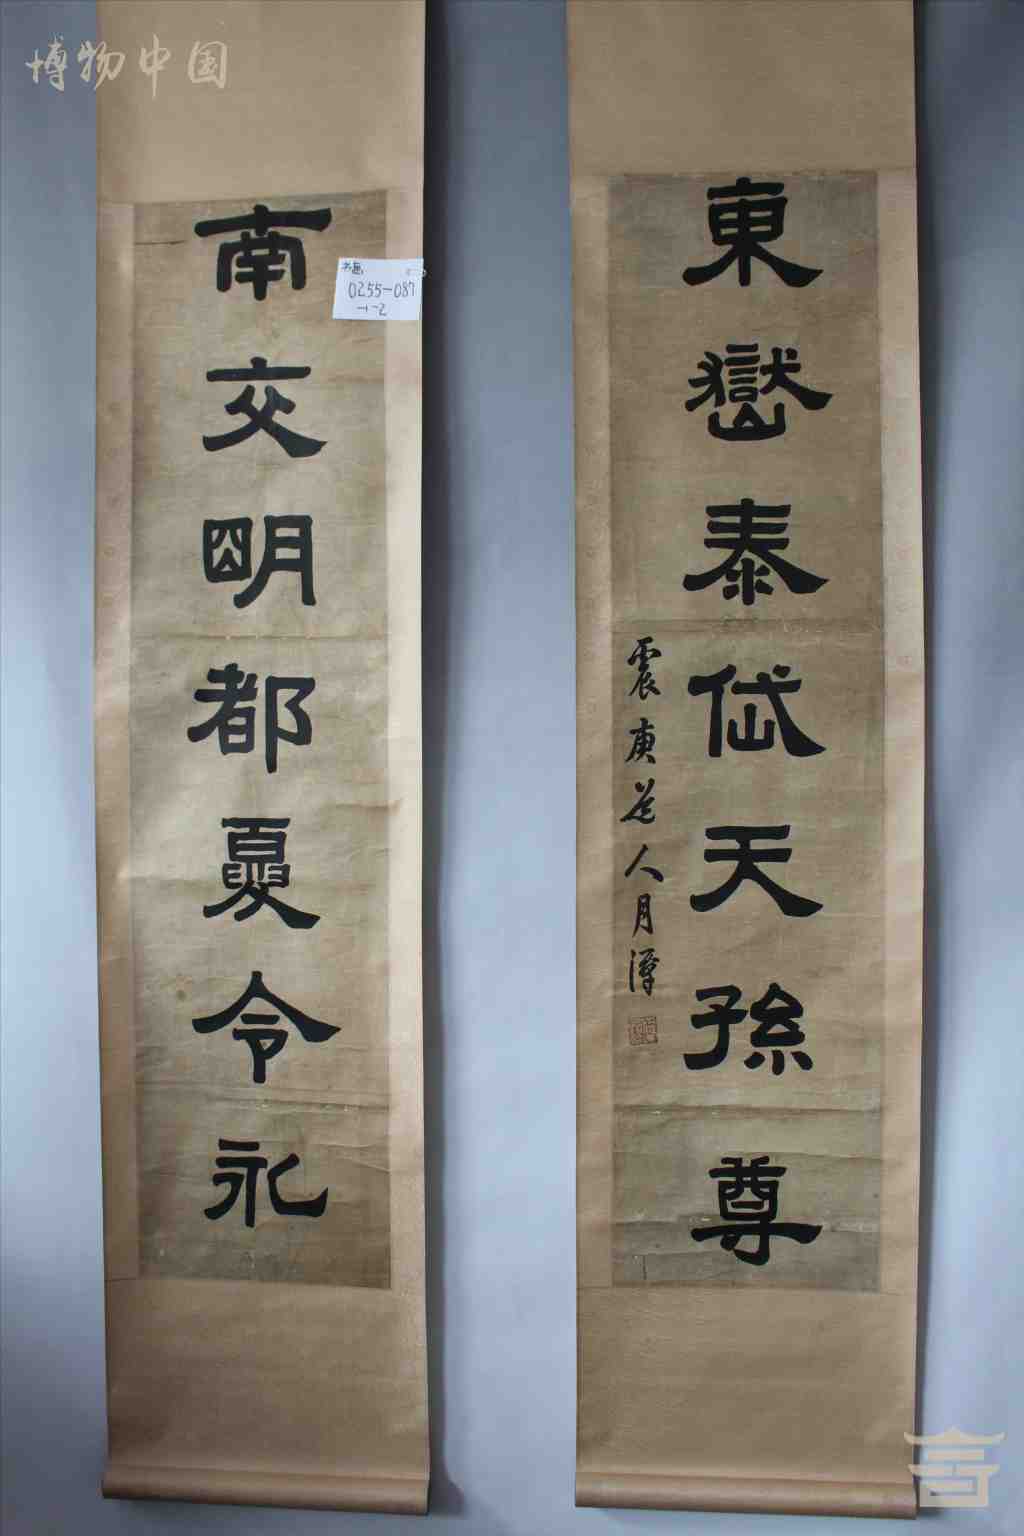 博物中国
東嶽泰岱天孫尊
震庚道人月潭
南交明都夏令永
书画
0255-087
-1~2